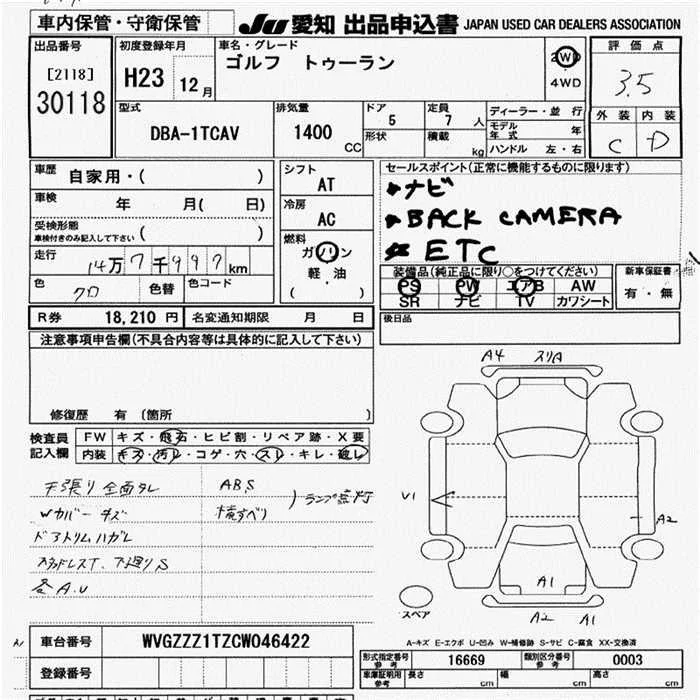 車内保管・守衛保管
JU 愛知 出品申込書 JAPAN USED CAR DEALERS ASSOCIATION
出品番号
[2118]
30118
初度登録年月
H23 12月
車名・グレード
ゴルフ トゥーラン
2WD
4WD
評価点
3.5
外装 内装
C D
型式
DBA-1TCAV
排気量
1400 CC
ドア
5
形状
定員
7 人
積載
kg
ディーラー・並行
モデル年式 年
ハンドル 左・右
車歴 自家用・( )
車検 年 月( 日)
受検形態
車検付きのみ記入して下さい ( )
走行 14万7千997km
色 クロ 色替 色コード
シフト
AT
冷房
AC
燃料
ガソリン
軽・油
( )
セールスポイント(正常に機能するものに限ります)
ナビ
BACK CAMERA
ETC
装備品(純正品に限り○をつけてください)
PS PW エアB AW
SR ナビ TV カワシート
新車保証書
有・無
R券 18,210円 名変通知期限 月 日
後日品
注意事項申告欄(不具合内容等は具体的に記入して下さい)
修復歴 有(箇所 )
検査員記入欄
FW キズ・飛石・ヒビ割・リペア跡・X要
内装 キズ・汚レ・コゲ穴・スレ・キレ・破レ
天張り全面タレ
Wカバーキズ
ドアトリムハガレ
下廻りS
各A.U
ABS
横すべり
ランプ点灯
A4 スリA
U1
A2
A1
A2 A1
スペア
A-キズ E-エクボ U-凹み W-補修跡 S-サビ C-腐食 XX-交換済
車台番号 WVGZZZ1TZCW046422
登録番号
形式指定番号 参考 16669 類別区分番号 参考 0003
車庫証明用 参考 長さ cm 幅 cm 高さ cm